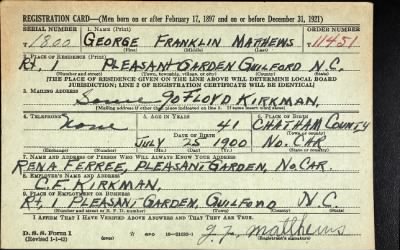 REGISTRATION CARD—(Men born on or after February 17, 1897 and on or before December 31, 1921)
SERIAL NUMBER 1. NAME (Print) ORDER NUMBER
T 1800 GEORGE FRANKLIN MATHEWS T 11451
(First) (Middle) (Last)
2. PLACE OF RESIDENCE (Print)
Rt. 1 PLEASANT GARDEN GUILFORD N.C.
(Number and street) (Town, township, village, or city) (County) (State)
[THE PLACE OF RESIDENCE GIVEN ON THE LINE ABOVE WILL DETERMINE LOCAL BOARD
JURISDICTION; LINE 2 OF REGISTRATION CERTIFICATE WILL BE IDENTICAL]
3. MAILING ADDRESS
Same % FLOYD KIRKMAN,
(Mailing address if other than place indicated on line 2. If same insert word same)
4. TELEPHONE 5. AGE IN YEARS 6. PLACE OF BIRTH
None 41 CHATHAM COUNTY
DATE OF BIRTH (Town or county)
JULY 25 1900 NO. CAR.
(Exchange) (Number) (Mo.) (Day) (Yr.) (State or country)
7. NAME AND ADDRESS OF PERSON WHO WILL ALWAYS KNOW YOUR ADDRESS
RENA FERREE, PLEASANT GARDEN, NO. CAR.
8. EMPLOYER'S NAME AND ADDRESS
C.F. KIRKMAN,
9. PLACE OF EMPLOYMENT OR BUSINESS
Rt. 1 PLEASANT GARDEN, GUILFORD N.C.
(Number and street or R. F. D. number) (Town) (County) (State)
I AFFIRM THAT I HAVE VERIFIED ABOVE ANSWERS AND THAT THEY ARE TRUE.
D. S. S. Form 1
(Revised 1-1-42) GPO matthews
(Registrant's signature)